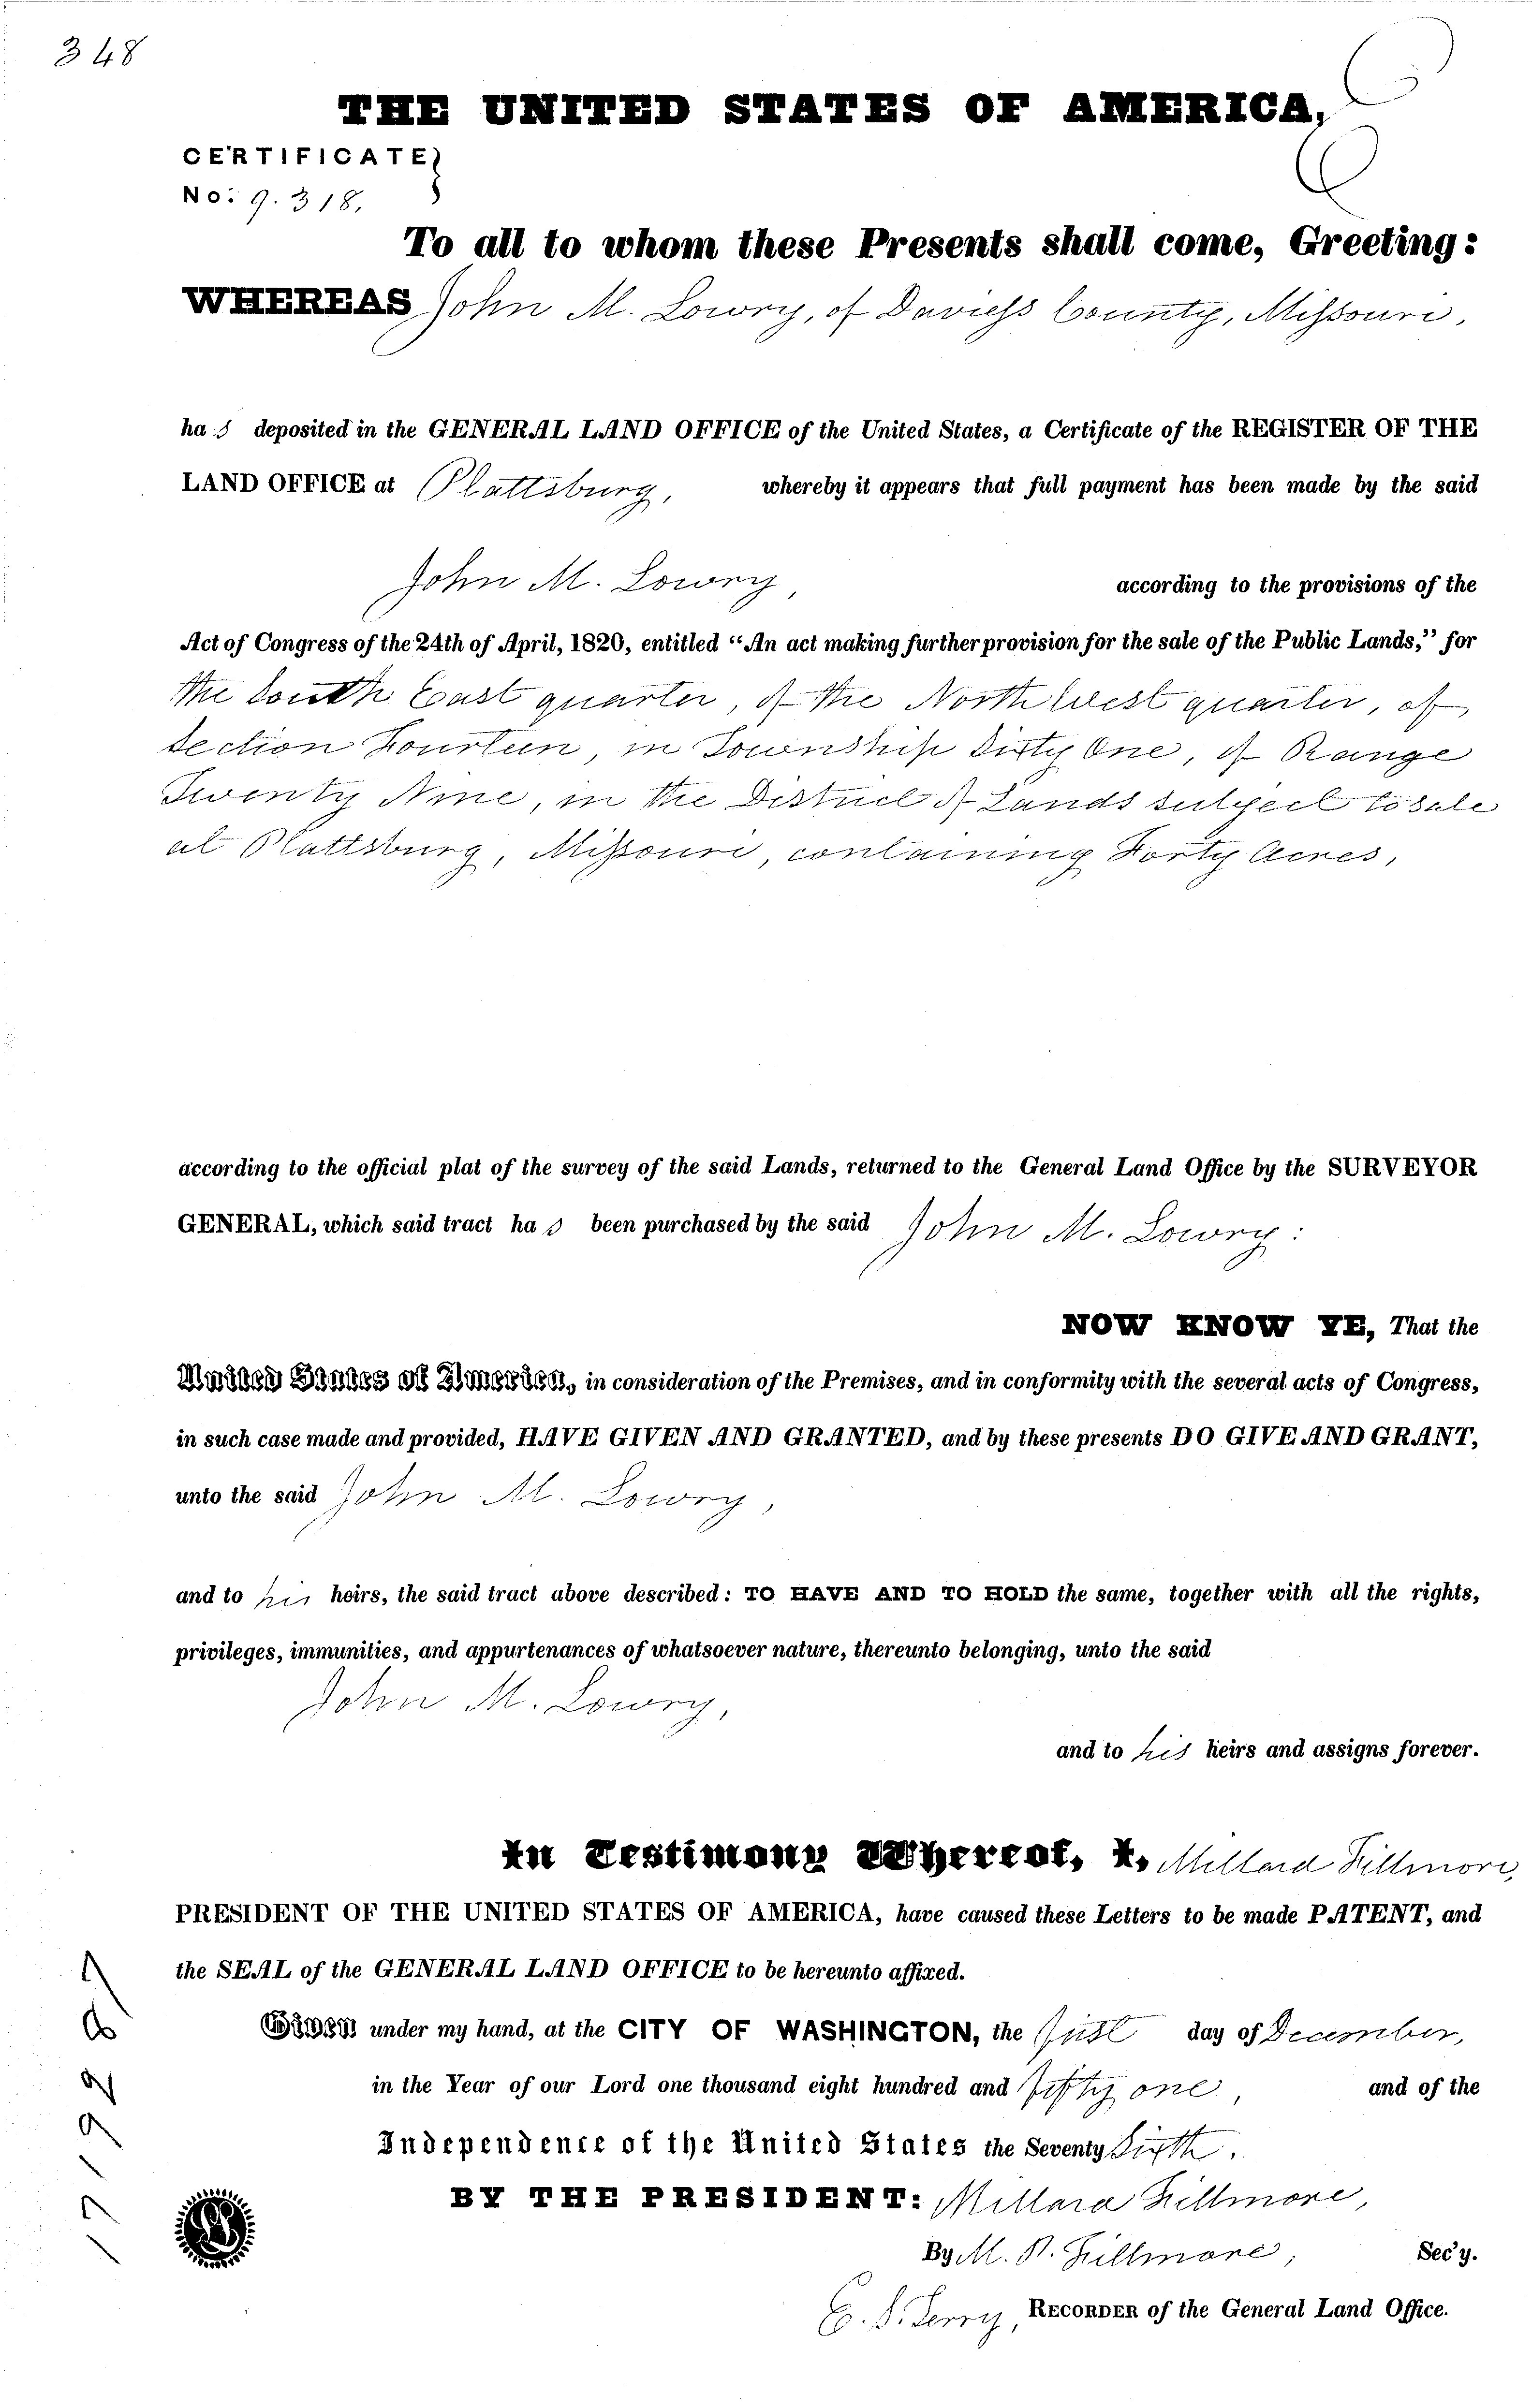 348
THE UNITED STATES OF AMERICA,
CERTIFICATE
No: 9.318,
To all to whom these Presents shall come, Greeting:
WHEREAS John M. Lowry, of Daviess County, Missouri,
has deposited in the GENERAL LAND OFFICE of the United States, a Certificate of the REGISTER OF THE
LAND OFFICE at Plattsburg, whereby it appears that full payment has been made by the said
John M. Lowry, according to the provisions of the
Act of Congress of the 24th of April, 1820, entitled “An act making further provision for the sale of the Public Lands,” for
the South East quarter, of the North West quarter, of
Section Fourteen, in Township Sixty One, of Range
Twenty Nine, in the District of Lands subject to sale
at Plattsburg, Missouri, containing Forty Acres,
according to the official plat of the survey of the said Lands, returned to the General Land Office by the SURVEYOR
GENERAL, which said tract has been purchased by the said John M. Lowry:
NOW KNOW YE, That the
United States of America, in consideration of the Premises, and in conformity with the several acts of Congress,
in such case made and provided, HAVE GIVEN AND GRANTED, and by these presents DO GIVE AND GRANT,
unto the said John M. Lowry,
and to his heirs, the said tract above described: TO HAVE AND TO HOLD the same, together with all the rights,
privileges, immunities, and appurtenances of whatsoever nature, thereunto belonging, unto the said
John M. Lowry,
and to his heirs and assigns forever.
In Testimony Whereof, I, Millard Fillmore,
PRESIDENT OF THE UNITED STATES OF AMERICA, have caused these Letters to be made PATENT, and
the SEAL of the GENERAL LAND OFFICE to be hereunto affixed.
Given under my hand, at the CITY OF WASHINGTON, the first day of December,
in the Year of our Lord one thousand eight hundred and fifty one, and of the
Independence of the United States the Seventy Sixth.
BY THE PRESIDENT: Millard Fillmore,
By M. P. Fillmore, Sec'y.
E. S. Terry, RECORDER of the General Land Office.